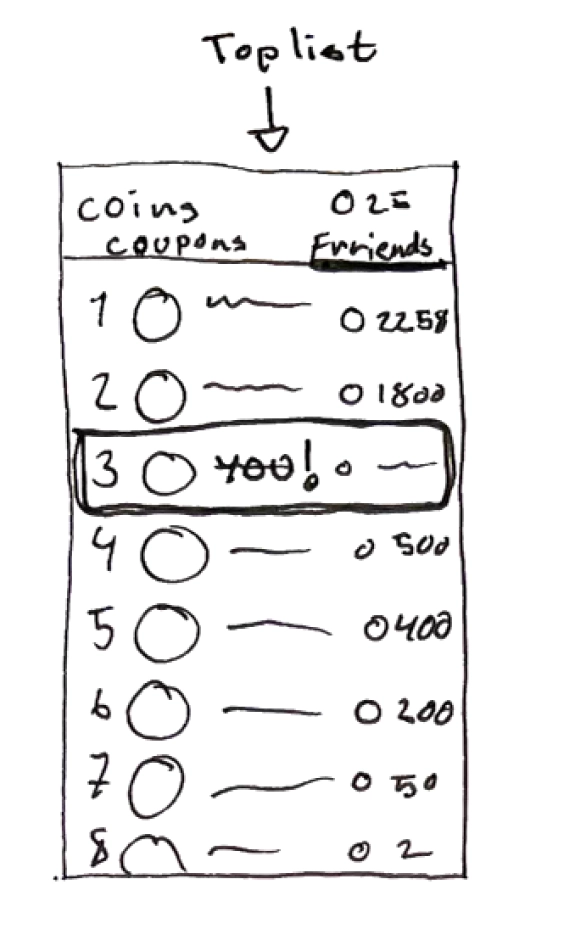 Top list
coins 25
coupons Frriends
1 2258
2 1800
3 YOU!
4 500
5 400
6 200
7 50
8 2